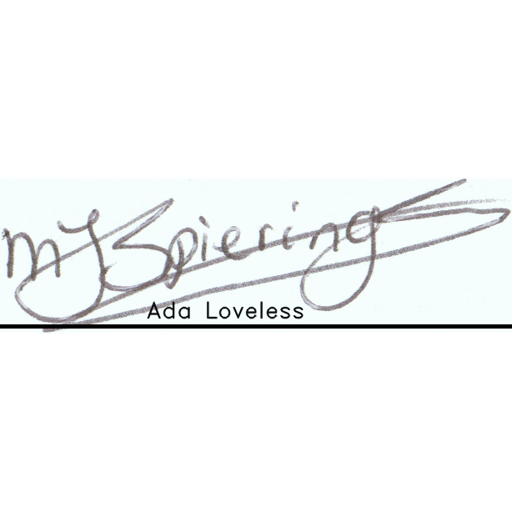 MJSpiering
Ada Loveless